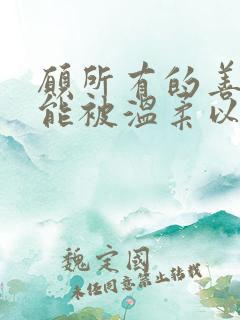 愿所有的善
能被温柔以
魏定国
未经同意禁止转载